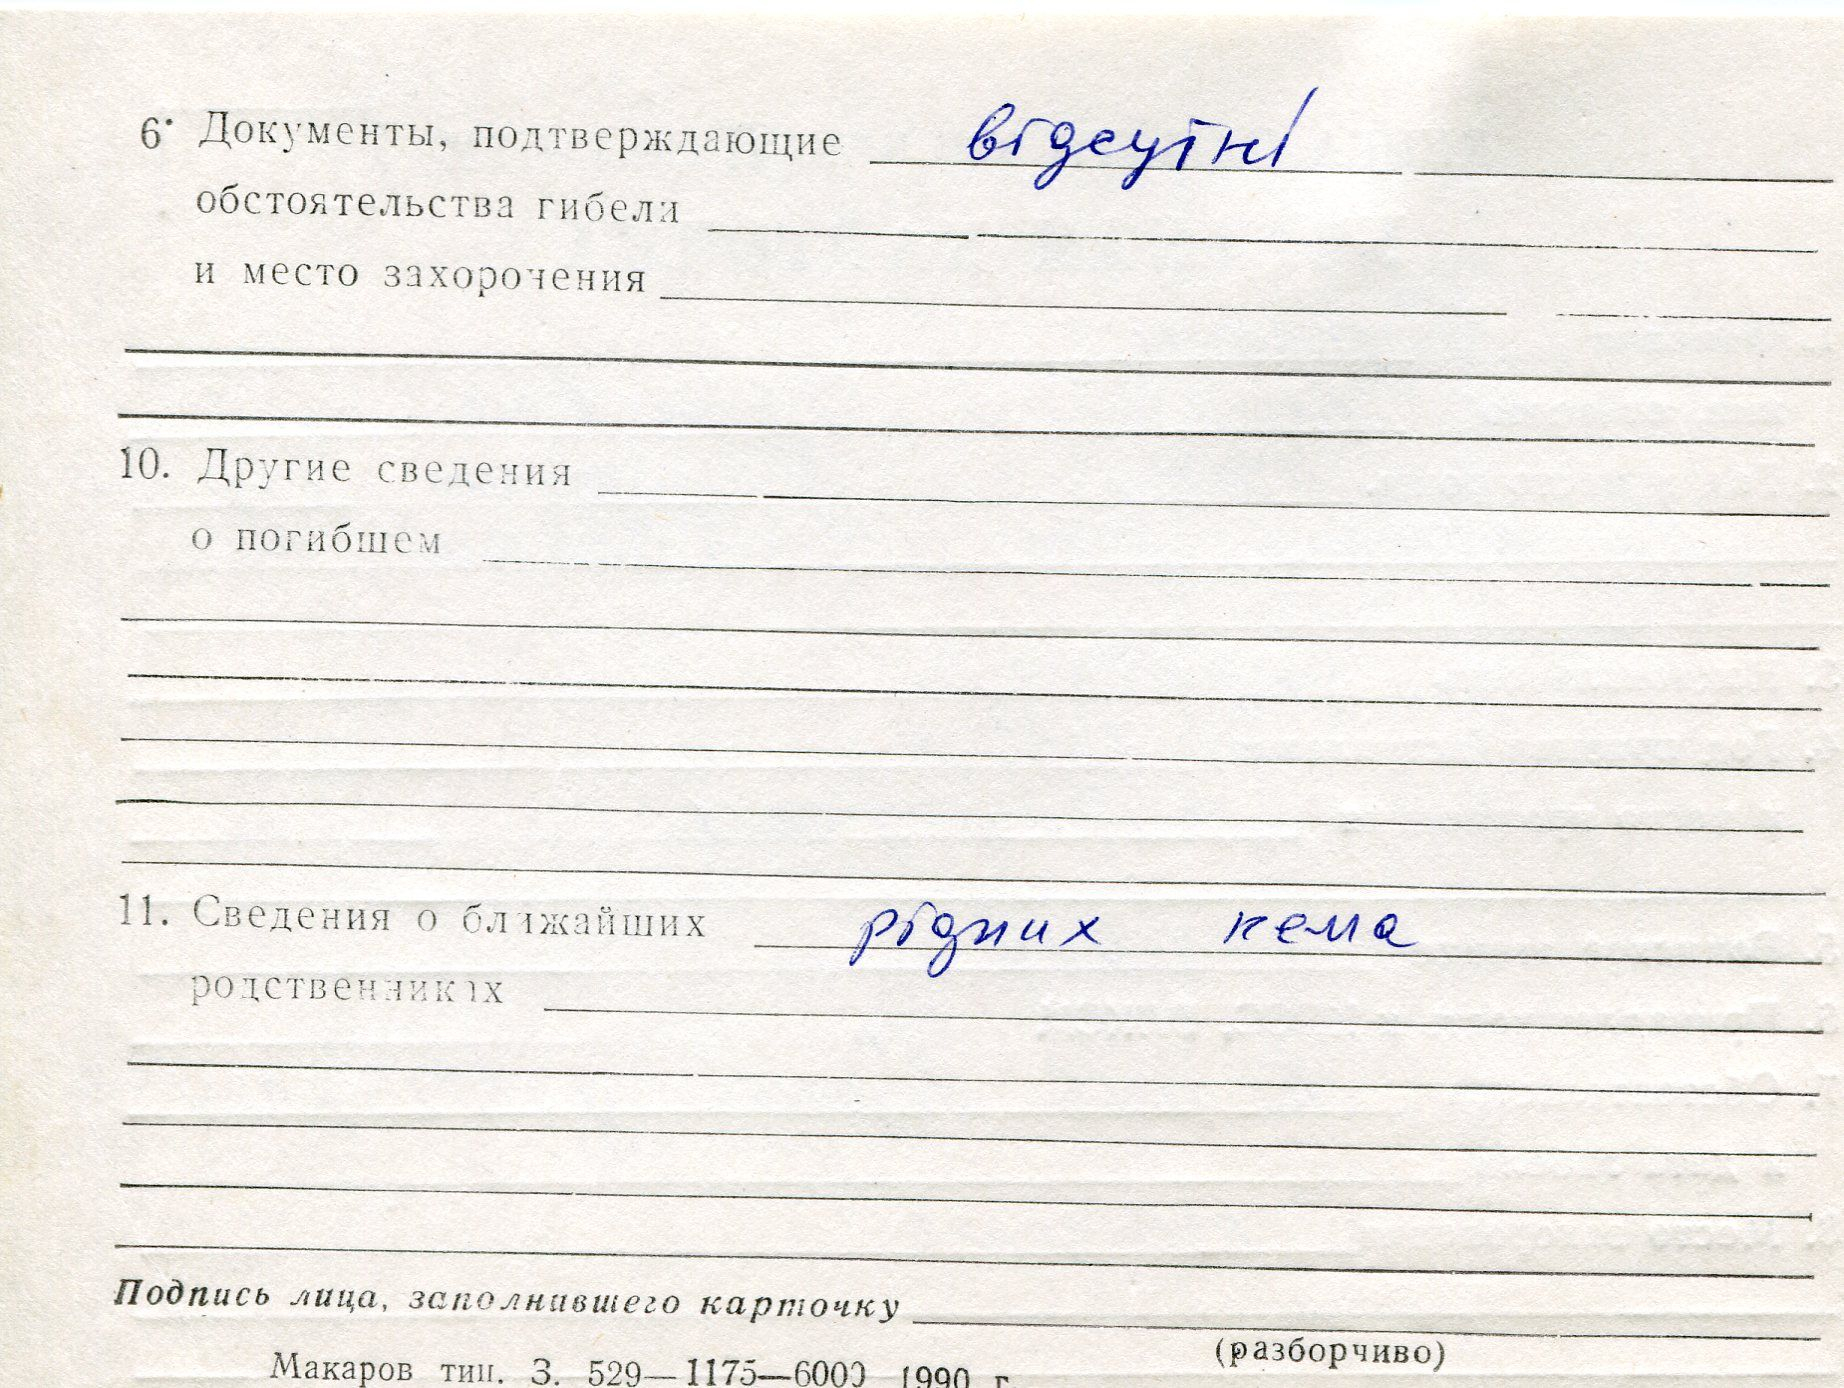 6. Документы, подтверждающие відсутні
обстоятельства гибели
и место захоронения
10. Другие сведения
о погибшем
11. Сведения о ближайших рідних нема
родственниках
Подпись лица, заполнившего карточку
(разборчиво)
Макаров тип. З. 529—1175—6000 1990 г.